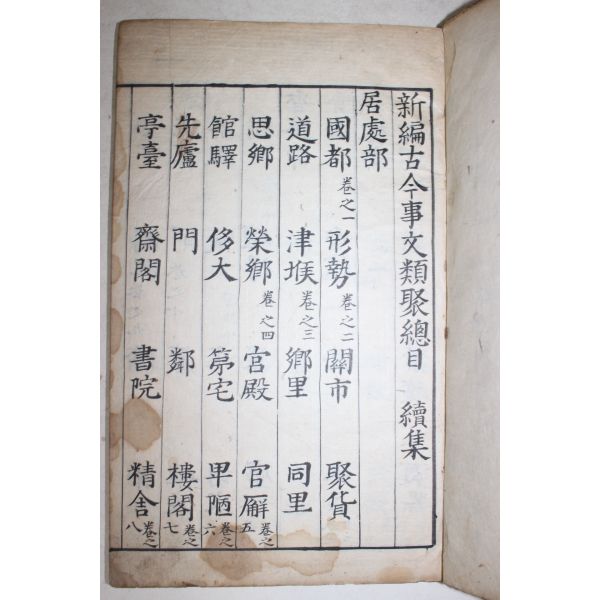 新編古今事文類聚總目 續集
居處部
國都 卷之一 形勢 卷之二 關市 聚貨
道路 津堠 卷之三 鄉里 同里
思鄉 榮鄉 卷之四 宮殿 官廨 卷之五
館驛 侈大 第宅 卑陋 卷之六
先廬 門 鄰 樓閣 卷之七
亭臺 齋閣 書院 精舍 卷之八